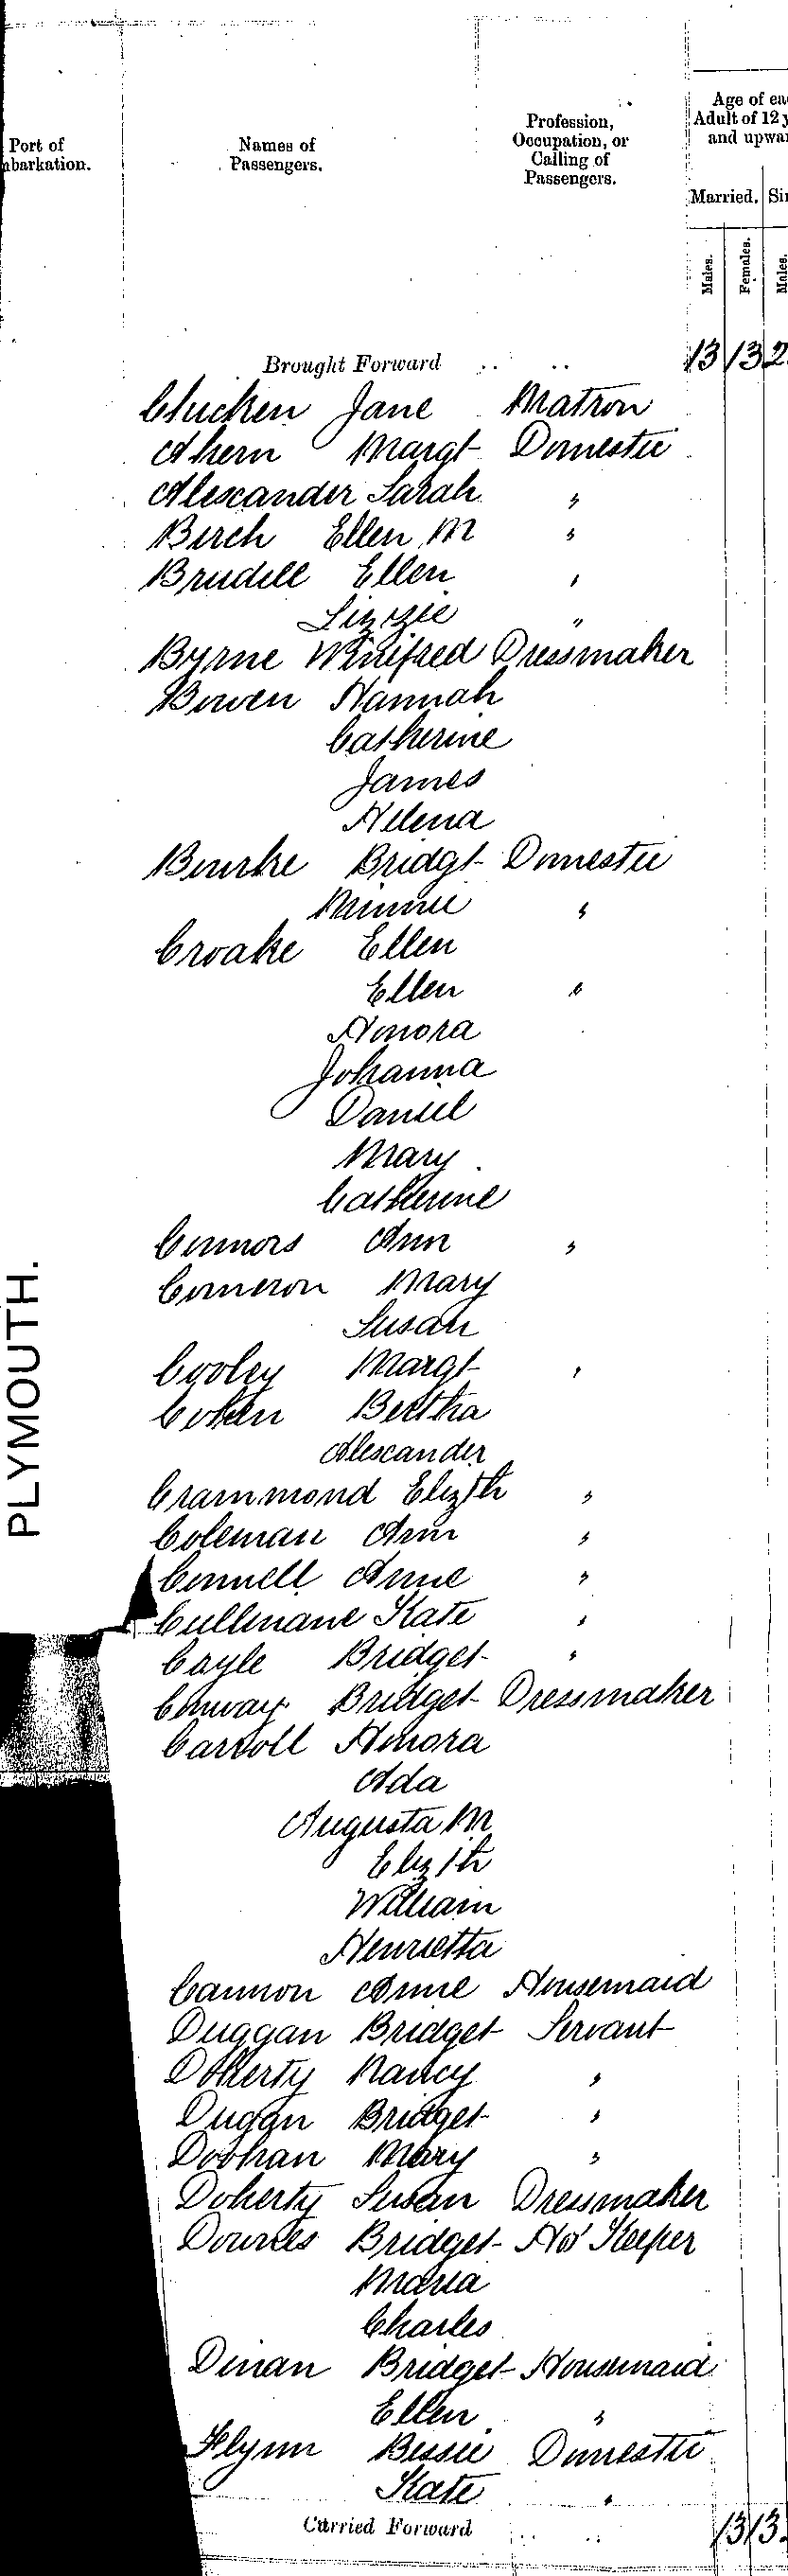 Port of
mbarkation.
Names of
Passengers.
Profession,
Occupation, or
Calling of
Passengers.
Age of ea
Adult of 12 y
and upwar
Married. Sin
Males. Females. Males.
Brought Forward .. .. 13 13 2
Clucken Jane Matron
Ahern Margt Domestic
Alexander Sarah "
Birch Ellen M "
Brudell Ellen "
Lizzie "
Byrne Winifred Dressmaker
Bowen Hannah
Catherine
James
Helena
Bourke Bridgt Domestic
Minnie "
Croake Ellen
Ellen "
Honora
Johanna
Daniel
Mary
Catherine
Connors Ann "
Comeron Mary
Susan
Cooley Margt "
Cohen Bertha
Alexander
Crammond Elizth "
Coleman Ann "
Connell Anne "
Cullinane Kate "
Cayle Bridget "
Conway Bridget Dressmaker
Carroll Honora
Ada
Augusta M
Elizth
William
Henrietta
Cannon Anne Housemaid
Duggan Bridget Servant
Doherty Nancy "
Dugan Bridget "
Doohan Mary "
Doherty Susan Dressmaker
Downes Bridget Ho' Keeper
Maria
Charles
Dinan Bridget Housemaid
Ellen "
Flynn Bessie Domestic
Kate "
Carried Forward .. .. 13 13
PLYMOUTH.